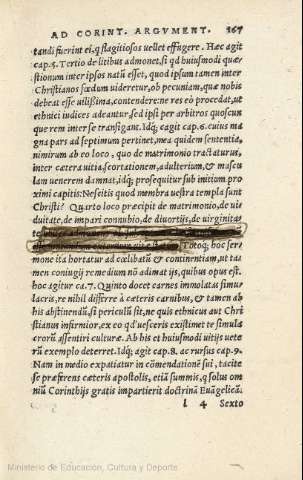 AD CORINT. ARGVMENT. 167
tandi fuerint ei, q̃ flagitiosos uellet effugere. Haec agit
cap. 5. Tertio de litibus admonet, si qd huiusmodi quae
stionum inter ipsos natũ esset, quod ipsum tamen inter
Christianos foedum uideretur, ob pecuniam, quae nobis
debeat esse uilissima, contendere: ne res eò procedat, ut
ethnici iudices adeantur, sed ipsi per arbitros quoscun
que rem inter se transigant. Idq; agit cap. 6. cuius ma
gna pars ad septimum pertinet, mea quidem sententia,
nimirum ab eo loco, quo de matrimonio tractaturus,
inter caetera uitia, scortationem, adulterium, & mascu
lam uenerem damnat, idq; prosequitur sub initium pro
ximi capitis: Nescitis quod membra uestra templa sunt
Christi? Quarto loco praecipit de matrimonio, de ui
duitate, de impari connubio, de diuortijs, de uirginitas
Totoq; hoc ser
mone ita hortatur ad coelibatũ & continentiam, ut ta
men coniugij remedium nõ adimat ijs, quibus opus est.
hoc agitur ca. 7. Quinto docet carnes immolatas simu
lacris, re nihil differre à caeteris carnibus, & tamen ab
his abstinendũ, si periculũ sit, ne quis ethnicus aut Chri
stianus infirmior, ex eo qd uesceris existimet te simula
crorũ assentiri culturae. Ab his et huiusmodi uitijs uete
rũ exemplo deterret. Idq; agit cap. 8. ac rursus cap. 9.
Nam in medio expatiatur in cõmendationẽ sui, tacite
se praeferens caeteris apostolis, etiã summis, q̃ solus om
niũ Corinthijs gratis impartierit doctrinã Euãgelicã.
l 4 Sexto
Ministerio de Educación, Cultura y Deporte